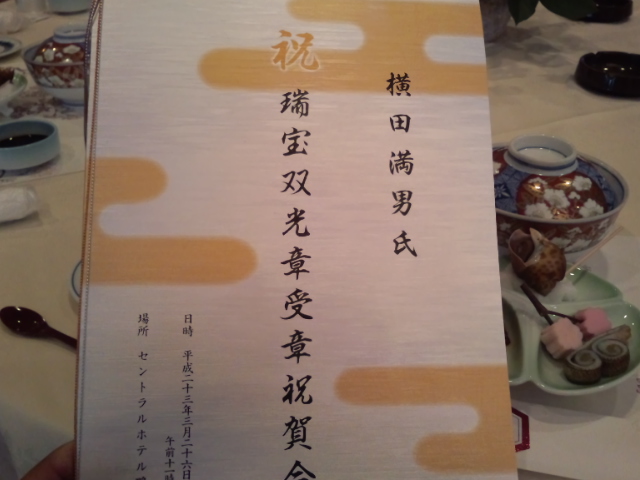 横田満男氏
祝
瑞宝双光章受章祝賀会
日時 平成二十三年三月二十六日
午前十一時
場所 セントラルホテル